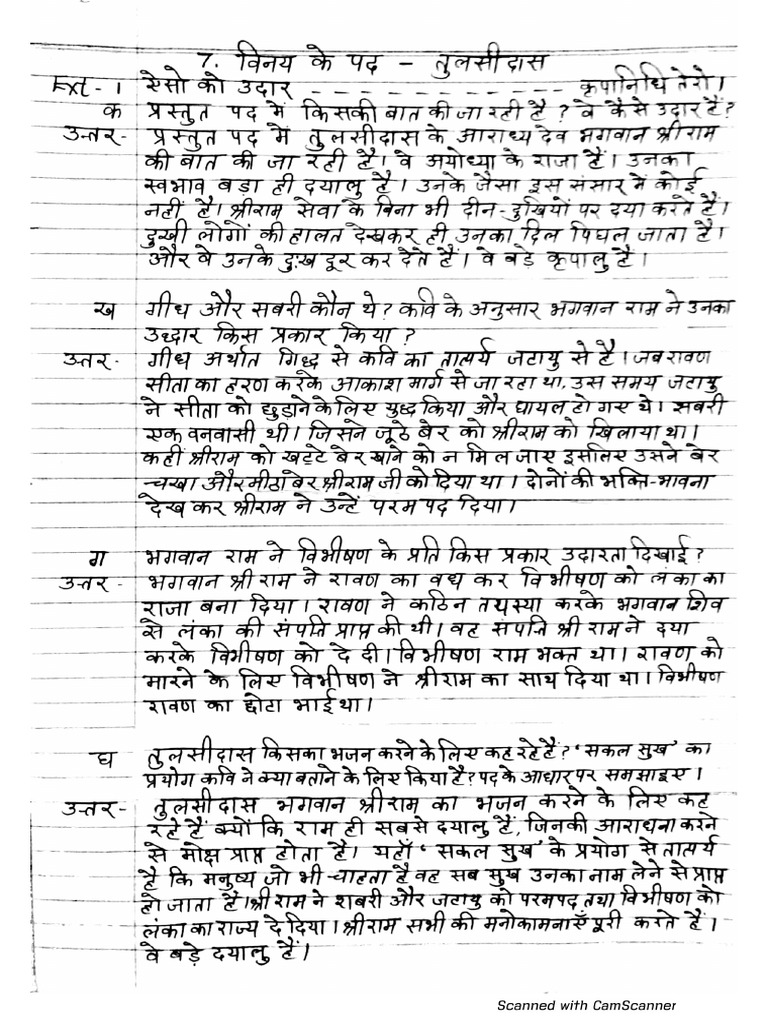 7. विनय के पद - तुलसीदास
Ext - 1 ऐसो को उदार - - - - - - - - - - - कृपानिधि तेरो।
क प्रस्तुत पद में किसकी बात की जा रही है? वे कैसे उदार हैं?
उत्तर- प्रस्तुत पद में तुलसीदास के आराध्य देव भगवान श्री राम
की बात की जा रही है। वे अयोध्या के राजा हैं। उनका
स्वभाव बड़ा ही दयालु है। उनके जैसा इस संसार में कोई
नहीं है। श्रीराम सेवा के बिना भी दीन-दुखियों पर दया करते हैं।
दुखी लोगों की हालत देखकर ही उनका दिल पिघल जाता है।
और वे उनके दुःख दूर कर देते हैं। वे बड़े कृपालु हैं।
ख गीध और सबरी कौन थे? कवि के अनुसार भगवान राम ने उनका
उद्धार किस प्रकार किया?
उत्तर- गीध अर्थात गिद्ध से कवि का तात्पर्य जटायु से है। जब रावण
सीता का हरण करके आकाश मार्ग से जा रहा था, उस समय जटायु
ने सीता को छुड़ाने के लिए युद्ध किया और घायल हो गए थे। सबरी
एक वनवासी थी। जिसने जूठे बेर को श्रीराम को खिलाया था।
कहीं श्रीराम को खट्टे बेर खाने को न मिल जाए इसलिए उसने बेर
चखा और मीठा बेर श्रीराम जी को दिया था। दोनों की भक्ति-भावना
देख कर श्रीराम ने उन्हें परम पद दिया।
ग भगवान राम ने विभीषण के प्रति किस प्रकार उदारता दिखाई?
उत्तर- भगवान श्री राम ने रावण का वध कर विभीषण को लंका का
राजा बना दिया। रावण ने कठिन तपस्या करके भगवान शिव
से लंका की संपति प्राप्त की थी। वह संपति श्री राम ने दया
करके विभीषण को दे दी। विभीषण राम भक्त था। रावण को
मारने के लिए विभीषण ने श्रीराम का साथ दिया था। विभीषण
रावण का छोटा भाई था।
घ तुलसीदास किसका भजन करने के लिए कह रहे हैं? 'सकल सुख' का
प्रयोग कवि ने क्या बताने के लिए किया है? पद के आधार पर समझाइए।
उत्तर- तुलसीदास भगवान श्रीराम का भजन करने के लिए कह
रहे हैं क्यों कि राम ही सबसे दयालु हैं, जिनकी आराधना करने
से मोक्ष प्राप्त होता है। यहाँ 'सकल सुख' के प्रयोग से तात्पर्य
है कि मनुष्य जो भी चाहता है वह सब सुख उनका नाम लेने से प्राप्त
हो जाता है। श्री राम ने शबरी और जटायु को परमपद तथा विभीषण को
लंका का राज्य दे दिया। श्रीराम सभी की मनोकामनाएँ पूरी करते हैं।
वे बड़े दयालु हैं।
Scanned with CamScanner